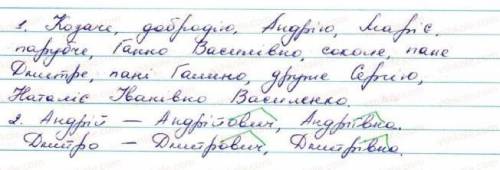 1. Козаче, добродію, Андрію, Маріє,
парубче, Ганно Василівно, соколе, пане
Дмитре, пані Галино, друже Сергію,
Наталіє Іванівно Василенко.
2. Андрій — Андрійович, Андріївна.
Дмитро — Дмитрович, Дмитрівна.